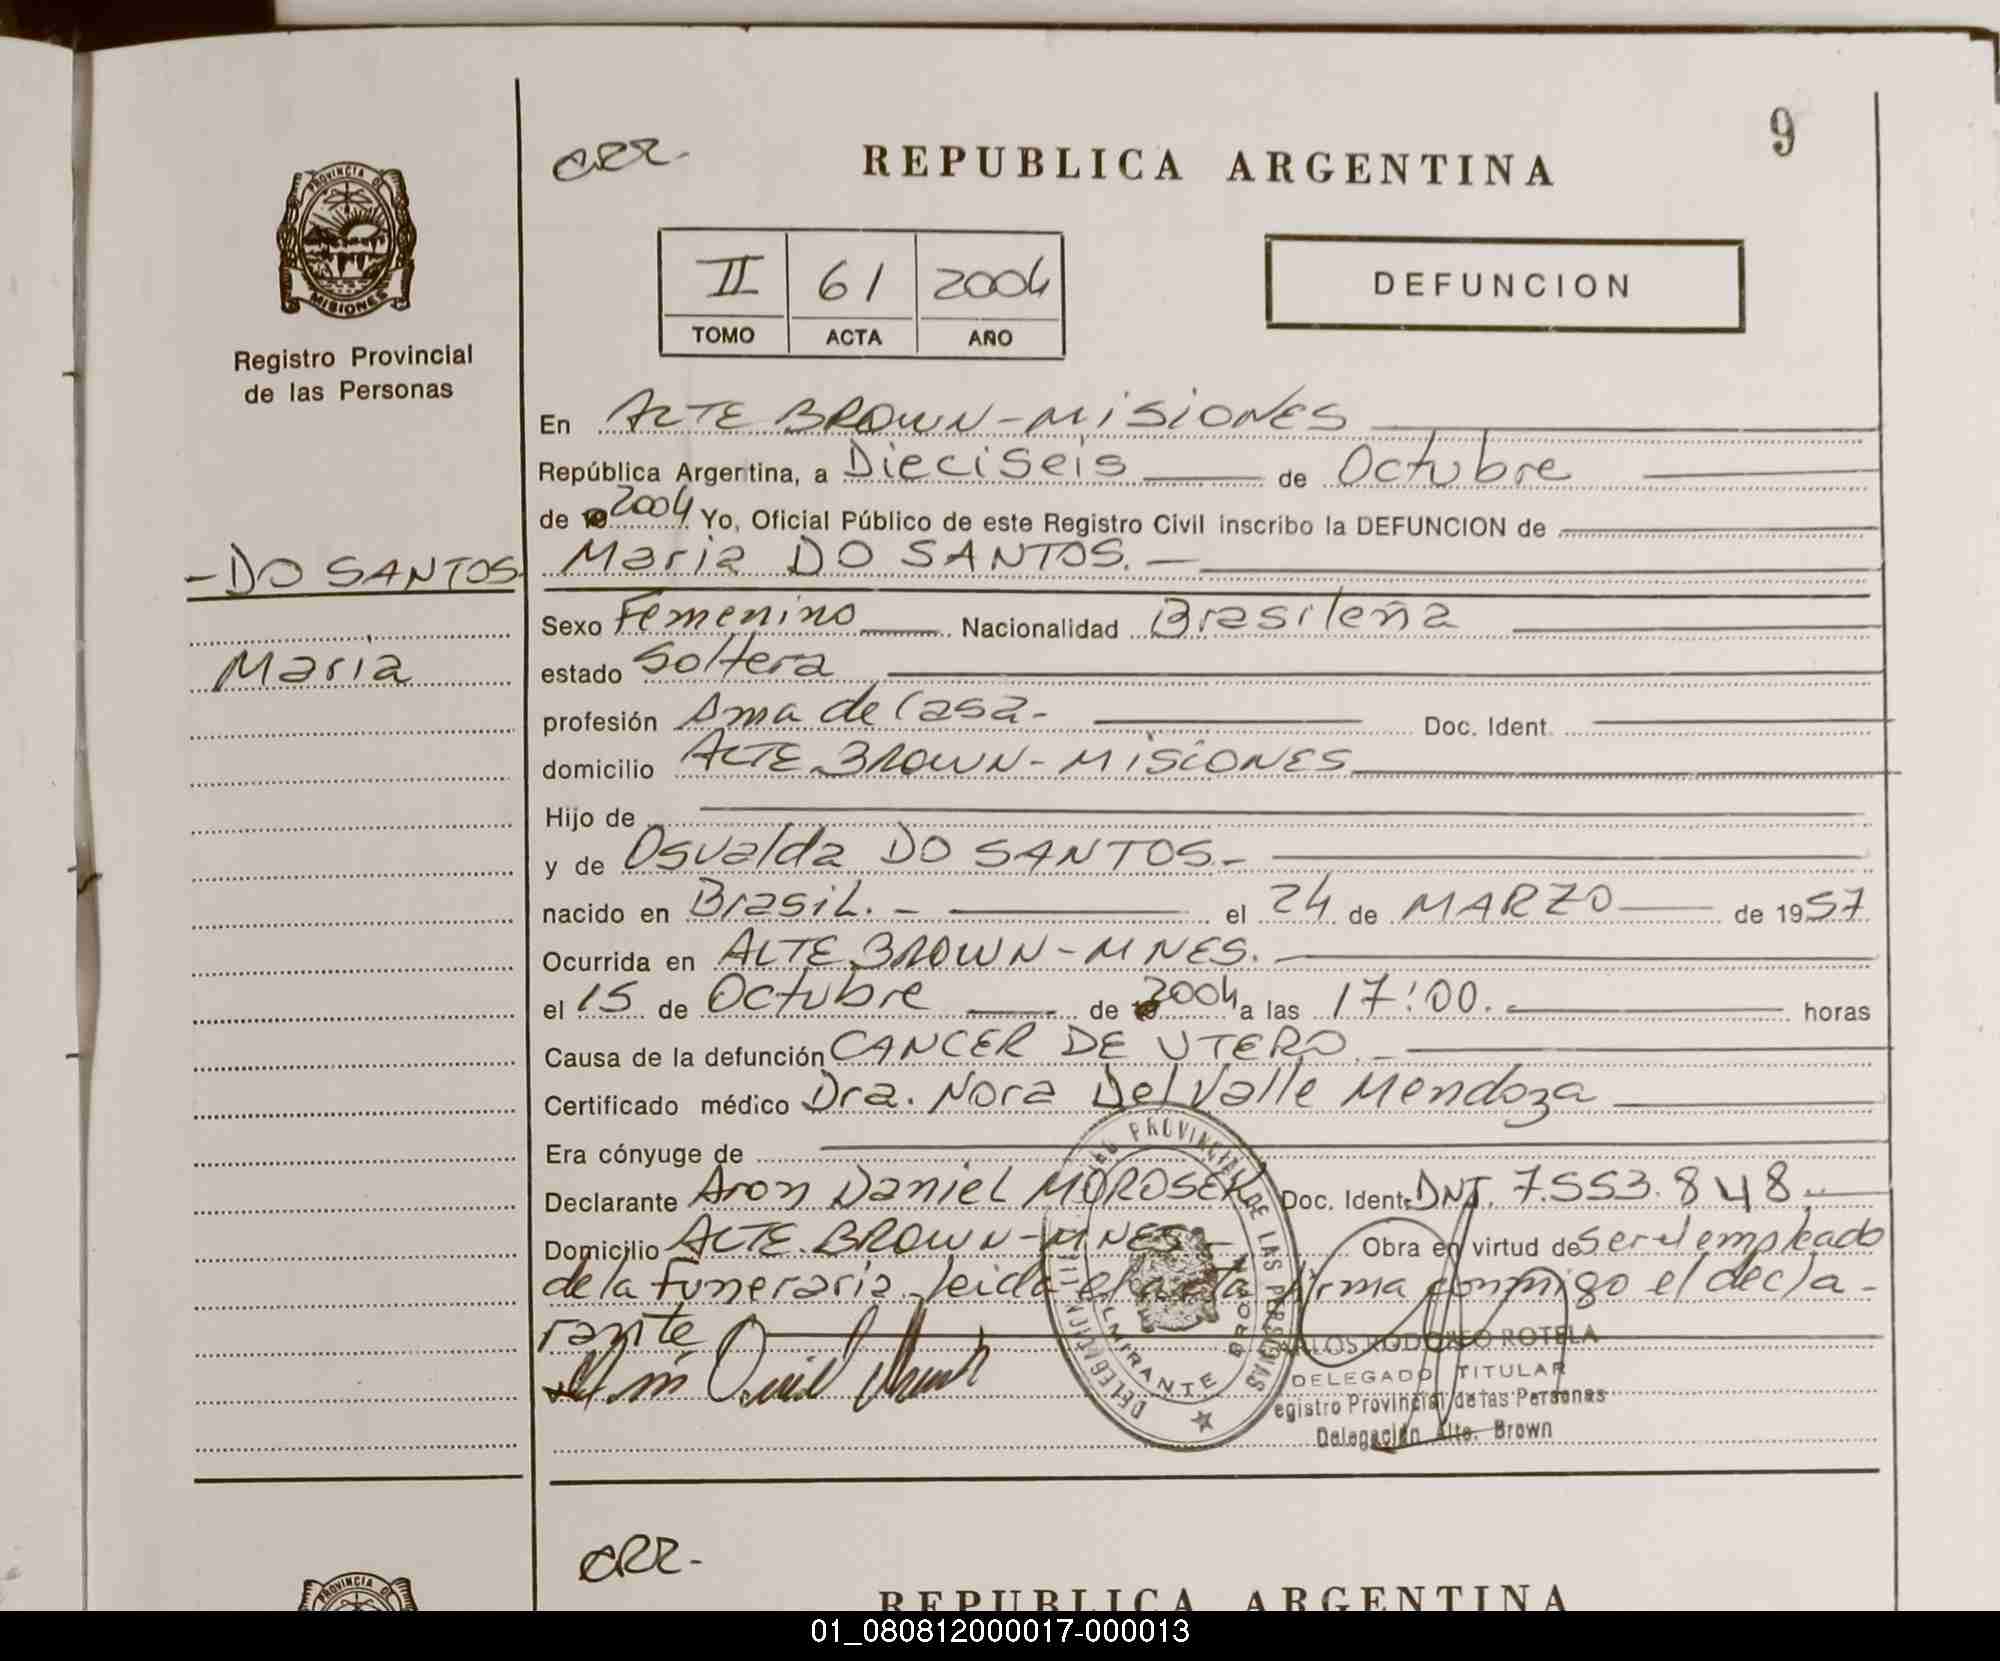 9
CRR-
REPUBLICA ARGENTINA
PROVINCIA DE
MISIONES
Registro Provincial
de las Personas
II 61 2004
TOMO ACTA AÑO
DEFUNCION
En ALTE BROWN-MISIONES
República Argentina, a Dieciseis de Octubre
de 2004 Yo, Oficial Público de este Registro Civil inscribo la DEFUNCION de
-DO SANTOS-
Maria
Maria DO SANTOS.-
Sexo Femenino Nacionalidad Brasileña
estado Soltera
profesión Ama de Casa- Doc. Ident.
domicilio ALTE BROWN-MISIONES
Hijo de
y de Osvalda DO SANTOS.-
nacido en Brasil.- el 24 de MARZO de 1957
Ocurrida en ALTE BROWN-MNES.
el 15 de Octubre de 2004 a las 17:00. horas
Causa de la defunción CANCER DE UTERO.-
Certificado médico Dra. Nora Del Valle Mendoza
Era cónyuge de
Declarante Aron Daniel MOROSEK Doc. Ident. DNI. 7.553.848..
Domicilio ALTE. BROWN-MNES- Obra en virtud de ser el empleado
de la Funeraria leida el acta firma conmigo el decla-
rante
PROVINCIAL DE LAS PERSONAS
DELEGACION
ALMIRANTE BROWN
CARLOS RODOLFO ROTELA
DELEGADO TITULAR
egistro Provincial de las Personas
Delegación Alte. Brown
CRR-
PROVINCIA DE
REPUBLICA ARGENTINA
01_080812000017-000013